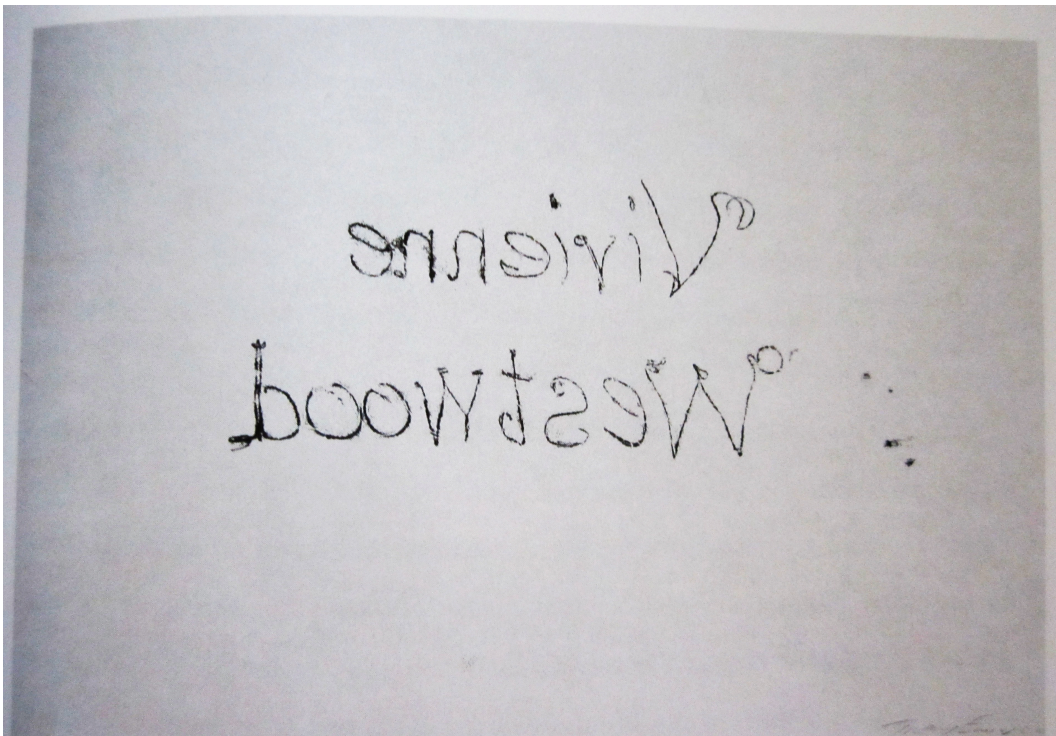 Vivienne
Westwood